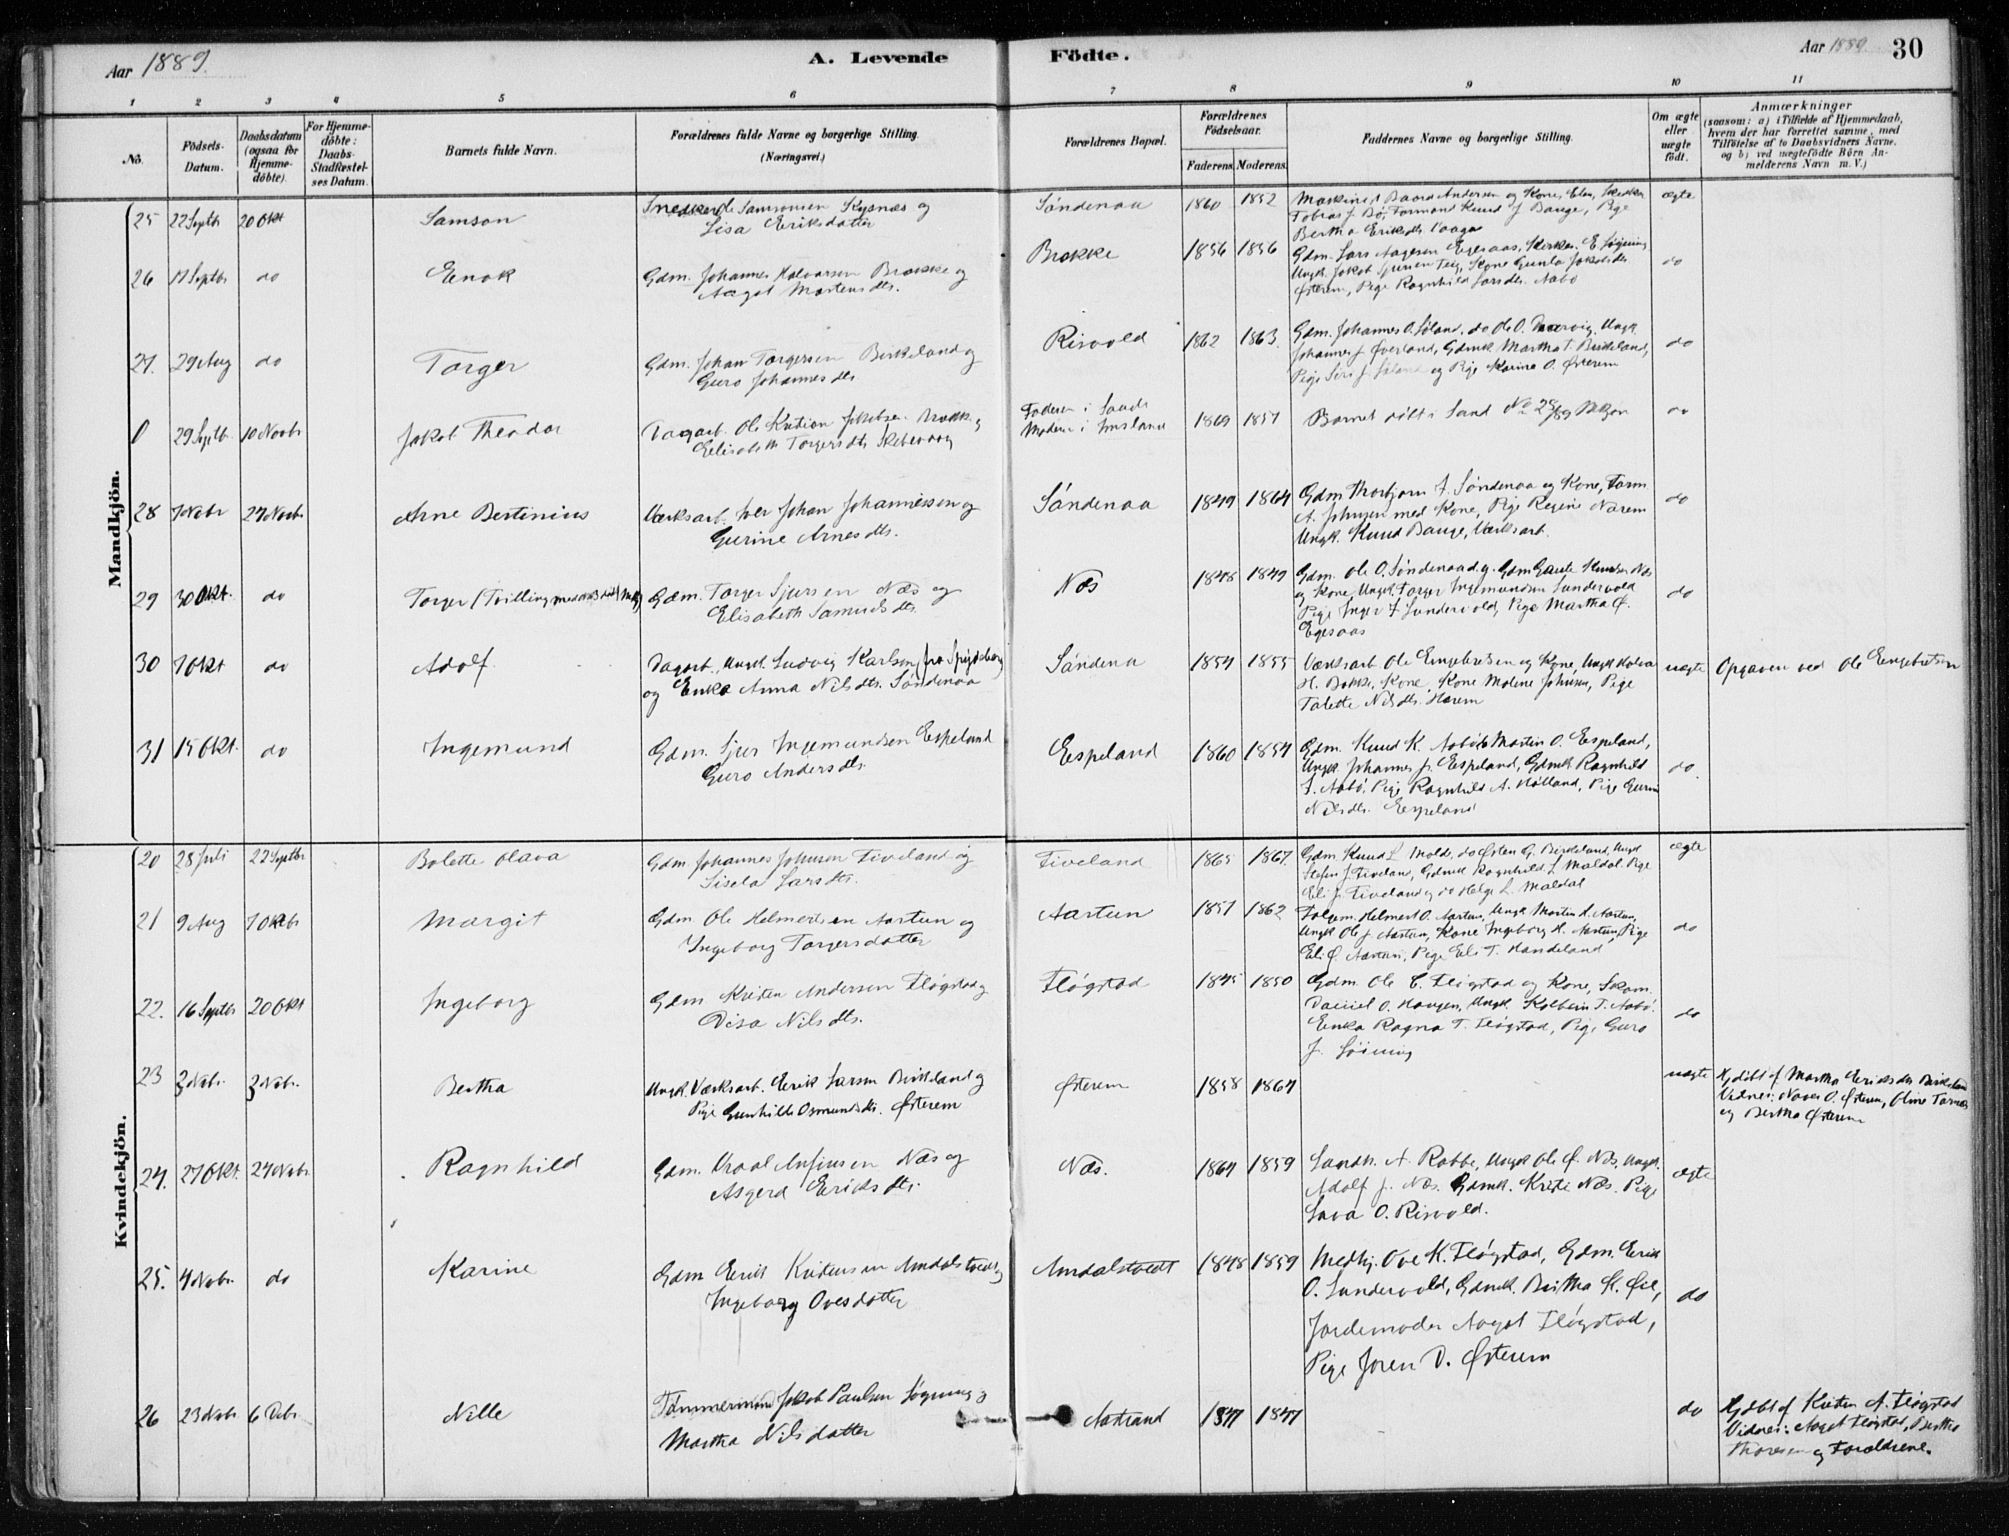 Aar 1889.
A. Levende
Födte.
Aar 1889.
30
1 2 3 4 5 6 7 8 9 10 11
No.
Födsels-
Datum.
Daabsdatum
(ogsaa for
Hjemme-
döbte).
For Hjemme-
döbte:
Daabs-
Stadfæstel-
ses Datum.
Barnets fulde Navn.
Forældrenes fulde Navne og borgerlige Stilling.
(Næringsvei.)
Forældrenes Bopæl.
Forældrenes
Födselsaar.
Faderens. Moderens.
Faddernes Navne og borgerlige Stilling.
Om ægte
eller
uægte
födt.
Anmærkninger
(saasom: a) i Tilfælde af Hjemmedaab,
hvem der har forrettet samme, med
Tilföielse af to Daabsvidners Navne.
og b) ved uægtefödte Börn An-
melderens Navn m. V.)
Mandkjön.
25 22 Septbr 20 Okt Samson
Samsonsen Kysnæs og
Lisa Eriksdatter
Söndenaa 1860 1852
Baard Andersen og Kone
Tobias J. Bö, Formand Knud J Bauge, Pige
Bertha Eriksdtr.
ægte
26 17 Septbr do Enok
Gdm. Johannes Halvorsen Brække og
Aagot Mortensdtr.
Brække 1856 1856
Gdm. Lars Aagesen Egesaas
Ungk. Jakob Kone Gunla Jakobsdtr
Østerem, Pige Ragnhild Larsdtr. Aabö
do
27. 29 Aug do Torger
Gdm. Johan Torgersen Birkeland og
Guro Johannesdtr
Risvold 1862 1863.
Gdm. Johannes O. Söland, do Ole O. Ungk.
Johannes J. Øverland, Gdmk Martha T. Birkeland,
Pige Siri J. Söland og Pige Karine O. Østerem
do
0 29 Septb 10 Novbr Jakob Theodor
Dagarb. Ole Kristian Jakobsen
Elisabeth Torgersdtr
Faderen i Sand
Moderen i Imsland
1869 1857
Barnet döbt i Sand No 28/89
do
28 7 Novbr 24 Novbr Arne Bertinius
Værksarb. Iver Johan Johannessen og
Gurine Arnesdtr.
Söndenaa 1849 1864
Gdm Thorbjørn I. Söndenaa og Kone, Form.
A. Johnsen med Kone, Pige Regine Narem
Ungk. Knud Bauge, Værksarb.
do
29 30 Okt. do Torger (Tvilling med
Gdm. Torger Sjursen Næs og
Elisabeth Samuelsdtr
Næs 1848 1849
Gdm. Ole O. Söndenaa og Gdm Gaute Knudsen Næs
og Kone, Ungk Torger Ingemundsen Sundevold
Pige Inger I Sundevold, Pige Martha Ø.
Egesaas
do
30 7 Okt do Adolf
Dagarb. Ungk. Ludvig Karlsen fra
og Enke Anna Nilsdtr. Söndenaa
Söndena 1854 1855
Værksarb. Ole Engebretsen og Kone, Ungk Halvor
H. Bakke, Kone, Kone Moline Johnsen, Pige
Talette Nilsdtr. Harem
uægte
Opgaven ved Ole Engebretsen
31 15 Okt. do Ingemund
Gdm. Sjur Ingemundsen Espeland
Guro Andersdtr.
Espeland 1860 1854
Gdm. Knud K. Aabö, Martin O. Espeland,
Ungk. Johannes J. Espeland, Gdmk Ragnhild
T. Aabö, Pige Ragnhild A. Hölland, Pige
Nilsdtr. Espeland
do.
Kvindekjön.
20 28 Juli 22 Septbr Bolette Olava
Gdm. Johannes Johnsen Fiveland og
Sisela Larsdtr.
Fiveland 1865 1867.
Gdm. Knud L Molde, do Østen G. Birkeland, Ungk
Stefen J. Fiveland, Gdmk Ragnhild L Maldal. Pige
Eli J. Fiveland og do Helge L. Maldal
ægte
21 9 Aug 7 Oktbr Margit
Gdm. Ole Helmertsen Aartun og
Ingeborg Torgersdatter
Aartun 1857 1862
Folgem. Helmert O. Aartun, Ungk Martin H. Aartun,
Ungk Ole J. Aartun, Kone Ingeborg H. Aartun, Pige
Eli Ø. Aartun, Pige Eli T. Handeland
do
22. 16 Septbr 20 Okt Ingeborg
Gdm Kristen Andersen Flögstad og
Disa Nilsdtr.
Flögstad 1845 1850
Gdm. Ole C. Flögstad og Kone, Skom.
Daniel O. Haugen, Ungk. Kolbein T. Aabö.
Enke Ragna T. Flögstad, Pige Guro
J. Löining
do
23 3 Novbr. 3 Novbr. Bertha
Ungk Værksarb. Erik Larsen Birkeland og
Pige Gunhilde Osmundsdtr. Østerem
Østerem 1858 1864
uægte
Hjdöbt af Martha Eriksdtr Birkeland
Vidner: O. Østerem, Oline
og Bertha Østerem
24. 27 Okt. 24 Novbr Ragnhild
Gdm. Næs og
Asgerd Eriksdtr.
Næs. 1864 1859
Landh. A. Rabbe, Ungk Ole Ø. Næs, Ungk.
Adolf J. Næs. Gdmk. Kristi Næs. Pige
Sara O. Risvold.
ægte
25. 4 Novbr. do Karine
Gdm Erik Kristensen Amdalstvedt og
Ingeborg Ovesdatter
Amdalstvedt 1848 1859
Medhj. Ove K. Flögstad, Gdm. Erik
O. Sundevold, Gdmk. Bertha K. Øie,
Jordemoder Aagot Flögstad,
Pige Joren D. Østerem
do
26 23 Novbr 6 Debr Nille
Tömmermand Jakob Paulsen Løgning og
Martha Nilsdatter
Aastrand 1847 1847
do
Hjdöbt af Kristen A. Flögstad
Vidner: Aagot Flögstad, Bertha
Thoresen og Forældrene.